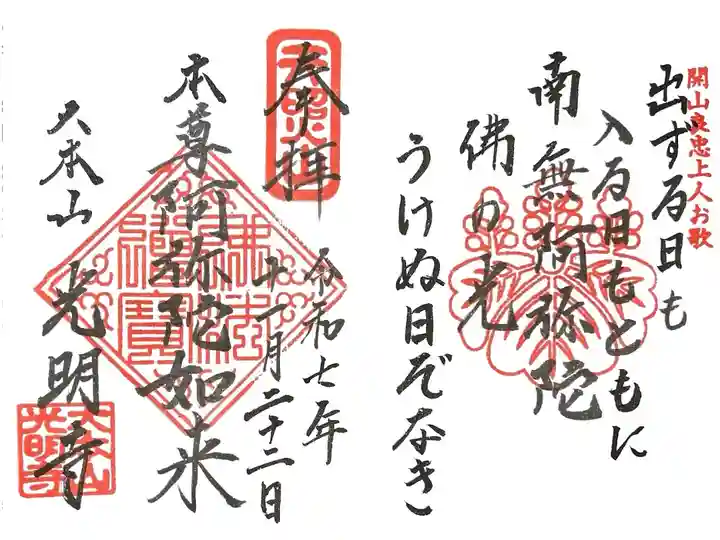 開山良忠上人お歌
出ずる日も
入る日もともに
南無阿弥陀
佛の光
うけぬ日ぞなき
奉拝
令和七年
十一月二十二日
本尊阿弥陀如来
大本山 光明寺
佛法僧寳
大本山
光明寺